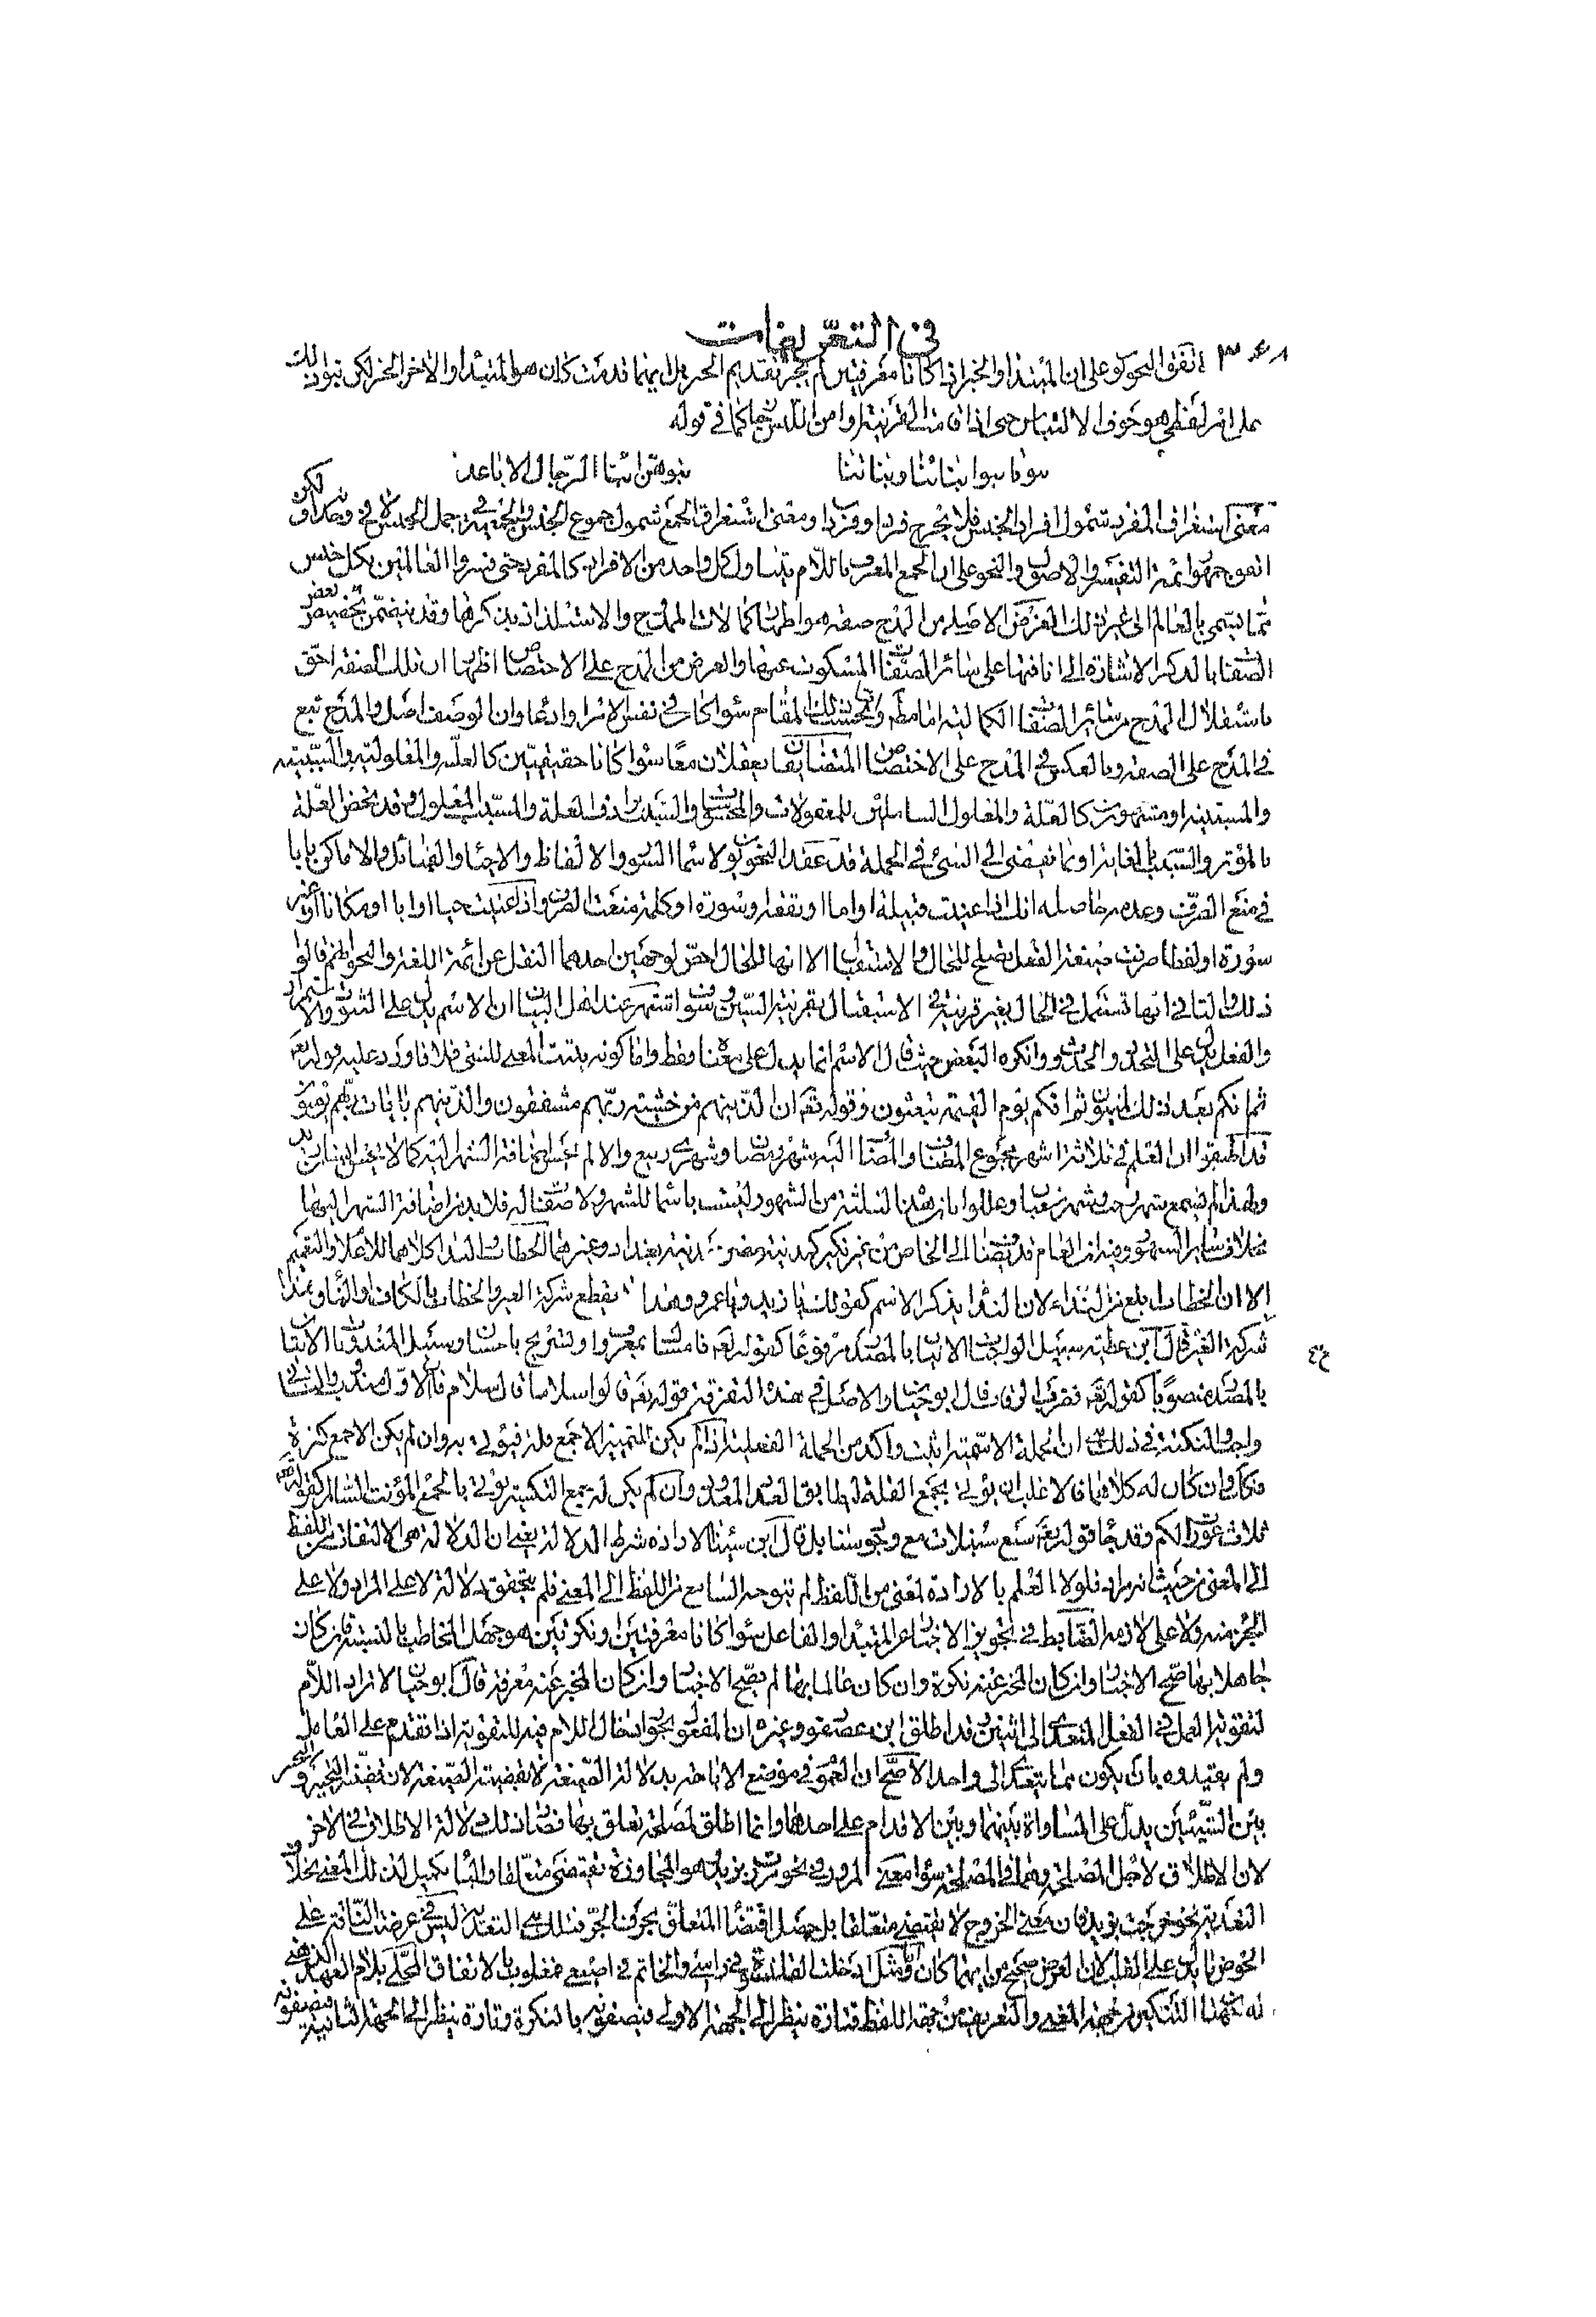 في التعريفات
اتفق النحويون على ان المبتدا والخبر اذا كانا معرفتين لم يجز تقديم الخبر بل ايهما قدمت كان هو المبتدا والاخر الخبر لكن بنوا ذلك
على امر لفظي هو خوف الالتباس حتى اذا قامت القرينة او امن اللبس جاز كما في قوله
بنونا بنوا ابنائنا وبناتنا بنوهن ابناء الرجال الاباعد
معنى استغراق المفرد شمول افراد الجنس فلا يخرج فرد او فردان ومعنى استغراق الجمع شمول جموع الجنس والجمعية في جمل الجنس لا في وحدانه لكن
اتفق جمهور ائمة التفسير والاصول والنحو على ان الجمع المعرف باللام يتناول كل واحد من الافراد كالمفرد حتى فسروا العالمين بكل جنس
مما يسمى بالعالم الى غير ذلك الغرض الاصلي من المدح صفة هو اظهار كمالات الممدوح والاستلذاذ بذكرها وقد يتضمن تخصيص بعض
الصفات بالذكر الاشارة الى انافتها على سائر الصفات المسكوت عنها والغرض من المدح على الاختصاص اظهار ان تلك الصفة احق
باستقلال المدح من سائر الصفات الكمالية اما مطلقا او بحسب ذلك المقام سواء كان في نفس الامر او ادعاء وان الوصف اصل والمدح تبع
في المدح على الصفة وبالعكس في المدح على الاختصاص المتضايفان يعقلان معا سواء كانا حقيقيين كالعلية والمعلولية والسببية
والمسببية او مشهورين كالعلة والمعلول الشاملين للمعقولات والمحسوسات والسبب يرادف العلة والمسبب المعلول وقد يخص العلة
بالمؤثر والسبب بالغاية او بما يفضي الى الشيء في الجملة قد عقد النحويون لاسماء السور والالفاظ والاحياء والقبائل والاماكن بابا
في منع الصرف وعدمه حاصله انك اذا عنيت قبيلة او اما او بقعة او سورة او كلمة منعت الصرف واذا عنيت حيا او ابا او مكانا او غير
سورة او لفظا صرفت صيغة الفعل تصلح للحال والاستقبال الا انها للحال اخص لوجهين احدهما النقل عن ائمة اللغة والنحو فانهم قالوا
ذلك والثاني انها تستعمل في الحال بغير قرينة وفي الاستقبال بقرينة السين وسوف اشتهر عند اهل البيان ان الاسم يدل على الثبوت والاستمرار
والفعل يدل على التجدد والحدوث وانكره البعض حيث قال الاسم انما يدل على معناه فقط واما كونه يثبت المعنى للشيء فلا فاورد عليه قوله تعالى
ثم انكم بعد ذلك لميتون ثم انكم يوم القيمة تبعثون وقوله تعالى ان الذين هم من خشية ربهم مشفقون والذين هم بايات ربهم يؤمنون
قد اطبقوا ان العلم في ثلاثة اشهر مجموع المضاف والمضاف اليه شهر رمضان وشهري ربيع والا لم يحسن اضافة الشهر اليه كما لا يحسن انسان زيد
ولهذا لم يسمع شهر رجب وشهر شعبان وعللوا بان هذه الثلاثة من الشهور ليست باسماء للشهر ولا صفات له فلا بد من اضافة الشهر اليها
بخلاف سائر الشهور وفيه ان العام قد يضاف الى الخاص من غير نكير كمدينة مصر ومدينة بغداد وغيرهما الخطاب والنداء كلاهما للاعلام والتفهيم
الا ان الخطاب ابلغ من النداء لان النداء بذكر الاسم كقولك يا زيد ويا عمرو وهذا لا يقطع شركة الغير والخطاب بالكاف والتاء وهذا يقطع
شركة الغير قال ابن عطية سبيل الواجبات الاتيان بالمصدر مرفوعا كقوله تعالى فامساك بمعروف او تسريح باحسان وسبيل المندوبات الاتيان
بالمصدر منصوبا كقوله تعالى فضرب الرقاب قال ابو حيان والاصل في هذه التفرقة قوله تعالى قالوا سلاما قال سلام فان الاول مندوب والثاني
واجب والنكتة في ذلك هي ان الجملة الاسمية اثبت واكد من الجملة الفعلية اذا لم يكن للتمييز الا جمع قلة فيؤتى به وان لم يكن الا جمع كثرة
فكذا وان كان له كلاهما فالاغلب ان يؤتى بجمع القلة ليطابق العدد المعدود وان لم يكن له جمع التكسير يؤتى بالجمع المؤنث السالم كقوله تعالى
ثلاث عورات لكم وقد جاء قوله تعالى سبع سنبلات مع وجود سنابل قال ابن سينا الارادة شرط الدلالة يعني ان الدلالة هي الالتفات من اللفظ
الى المعنى من حيث انه مراد فلولا العلم بالارادة لمعنى من اللفظ لم يتوجه السامع من اللفظ الى المعنى فلم يتحقق دلالة لا على المراد ولا على
الجزء منه ولا على لازمه الضابط في تجويز الاخبار عن المبتدا والفاعل سواء كانا معرفتين او نكرتين هو جهل المخاطب بالنسبة فان كان
جاهلا بها صح الاخبار وان كان المخبر عنه نكرة وان كان عالما بها لم يصح الاخبار وان كان المخبر عنه معرفة قال ابو حيان لا تزاد اللام
لتقوية العمل في الفعل المتعدي الى اثنين قد اطلق ابن عصفور وغيره ان المفعول يجوز ادخال اللام فيه للتقوية اذا تقدم على العامل
ولم يقيدوه بان يكون مما يتعدى الى واحد الاصح ان العموم في موضع الاباحة بدلالة الصيغة لا بقضية الصيغة لان قضية التخيير والحجر
بين الشيئين يدل على المساواة بينهما وبين الاقدام على احدهما وانما اطلق لمصلحة تعلق بها فصار ذلك دلالة الاطلاق في الاخر
لان الاطلاق لاجل المصلحة وهما في المصلحة سواء معنى المرور في نحو مررت بزيد هو المجاوزة تقتضي متعلقا والباء تكميل لذلك المعنى بخلاف
التعدية نحو خرجت بزيد فان معنى الخروج لا يقتضي متعلقا بل حصل اقتضاء المتعلق بحرف الجر فتلك هي التعدية ليس في عرضت الناقة على
الحوض نا بل من على القلب لان العرض صحيح من ايهما كان ادخلت القلنسوة في راسي والخاتم في اصبعي فمقلوب بالاتفاق المحلى بلام العهد الذهني
له جهتان التنكير من جهة المعنى والتعريف من جهة اللفظ فتارة ينظر الى الجهة الاولى فيصفونه بالنكرة وتارة ينظر الى الجهة الثانية فيصفونه